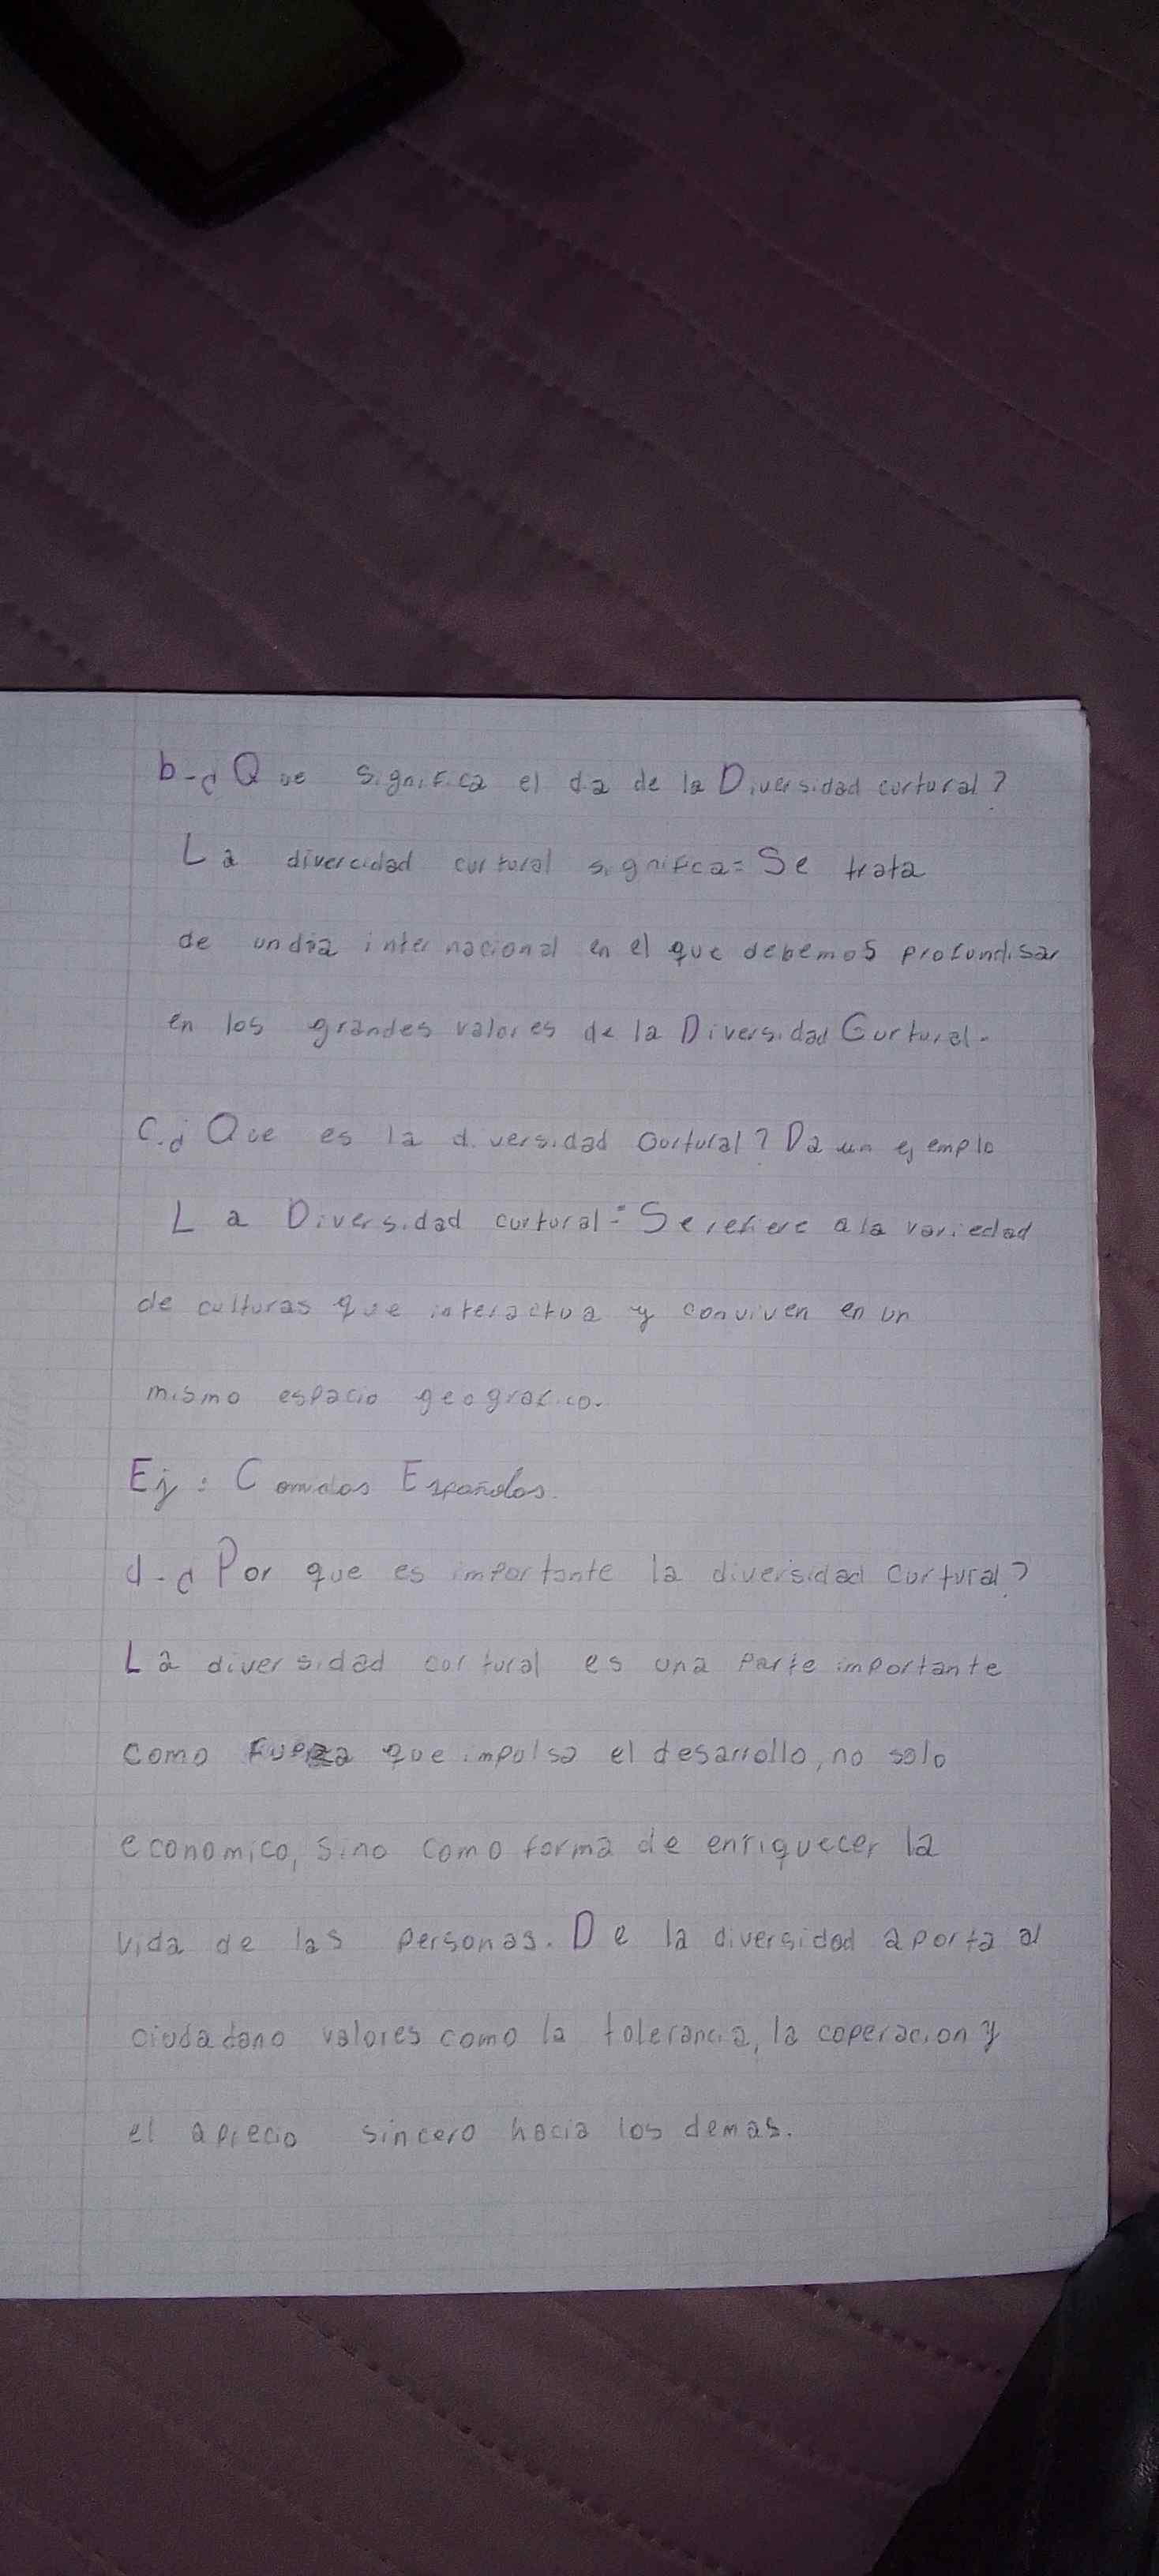 b-¿Que significa el dia de la Diversidad curtural?
La divercidad curtural significa= Se trata
de un dia internacional en el que debemos profundisar
en los grandes valores de la Diversidad Curtural.
C.¿Que es la diversidad Curtural? Da un ejemplo
La Diversidad curtural= Se refiere a la variedad
de culturas que interactua y conviven en un
mismo espacio geografico.
Ej: Comidas Españolas.
d-¿Por que es importante la diversidad curtural?
La diversidad curtural es una parte importante
como fuerza que impulsa el desarrollo, no solo
economico, sino como forma de enriquecer la
vida de las personas. De la diversidad aporta al
ciudadano valores como la tolerancia, la coperacion y
el aprecio sincero hacia los demas.